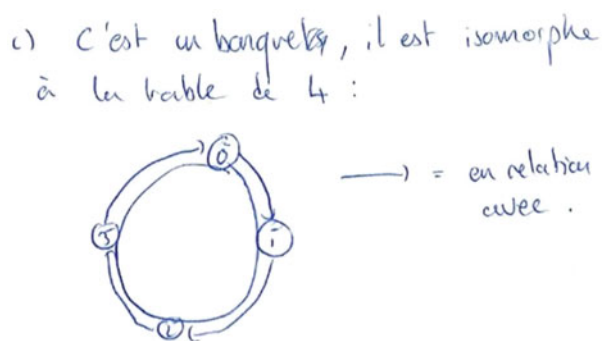 c) C'est un banquet, il est isomorphe
à la table de 4 :
0̄
→ = en relation
avec .
3̄
1̄
2̄